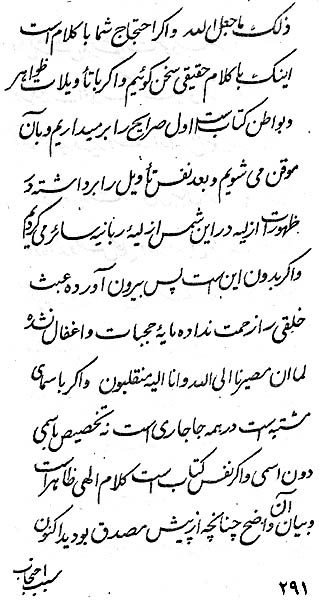 ذلک ماجعل الله واکر احتجاج شما با کلام است
اینک با کلام حقیقی سخن کوئیم واکر با تأویلات ظواهر
و بواطن کتاب است اول صرایح را بر میداریم و بآن
موقن می شویم و بعد نفس تأویل را برداشته در
ظهورات ازلیه در این شمس ازلیهٔ ربانیه سائر می کردیم
واکر بدون این است پس بیرون آورده عبث
خلقی را زحمت نداده مایهٔ حجبات و اغفال نشده
لما ان مصیرنا الی الله و انا الیه منقلبون واکر باسمای
مشتبه است در همه جا جاری است نه تخصیص باسمی
دون اسمی واکر نفس کتاب است کلام الهی ظاهر است
و بیان آن واضح چنانچه از پیش مصدق بودید اکنون
سبب احتجاب
۲۹۱